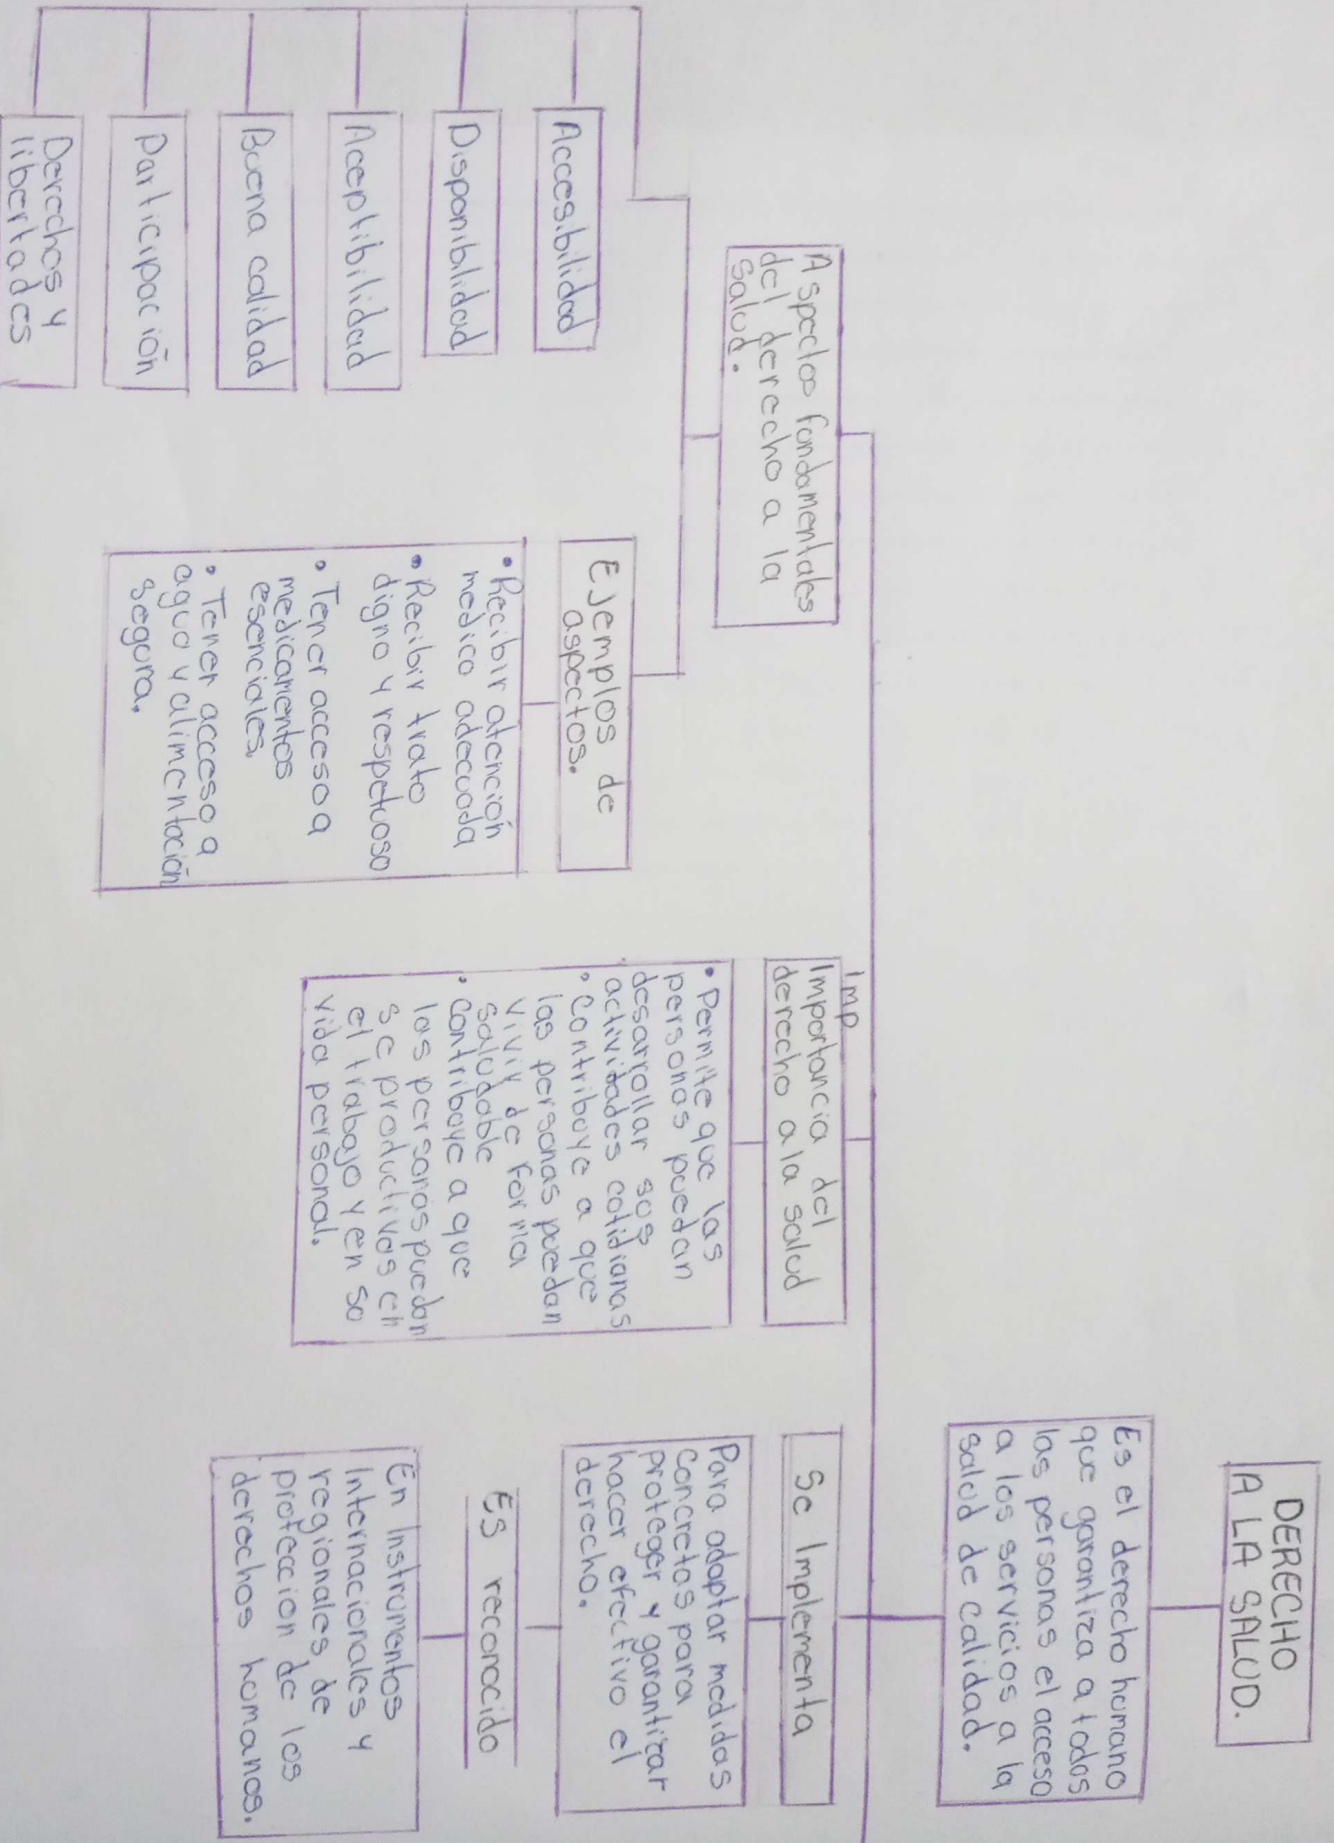 DERECHO
A LA SALUD.
Es el derecho humano
que garantiza a todos
las personas el acceso
a los servicios a la
salud de calidad.
Aspectos fundamentales
del derecho a la
salud.
Accesibilidad
Disponibilidad
Aceptibilidad
Buena calidad
Participación
Derechos y
libertades
Ejemplos de
aspectos.
• Recibir atención
medica adecuada
• Recibir trato
digno y respetuoso
• Tener acceso a
medicamentos
esenciales.
• Tener acceso a
agua y alimentación
segura.
Imp
Importancia del
derecho a la salud
• Permite que las
personas puedan
desarrollar sus
actividades cotidianas
• Contribuye a que
las personas puedan
vivir de forma
saludable
• Contribuye a que
las personas puedan
se productivas en
el trabajo y en su
vida personal.
Se Implementa
Para adoptar medidas
concretas para
proteger y garantizar
hacer efectivo el
derecho.
Es reconocido
En Instrumentos
Internacionales y
regionales de
proteccion de los
derechos humanos.